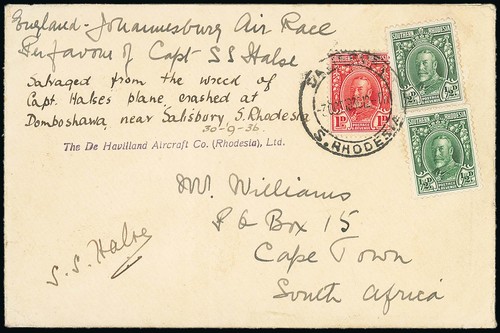 England - Johannesburg Air Race
Per favour of Capt SS Halse
Salvaged from the wreck of
Capt. Halse's plane, crashed at
Domboshawa, near Salisbury, S. Rhodesia
30-9-36.
The De Havilland Aircraft Co. (Rhodesia), Ltd.
SOUTHERN RHODESIA
1D 1D
S. RHODESIA
SOUTHERN RHODESIA
½D ½D
SOUTHERN RHODESIA
½D ½D
Mr. Williams
P O Box 15
Cape Town
South Africa
S. S. Halse